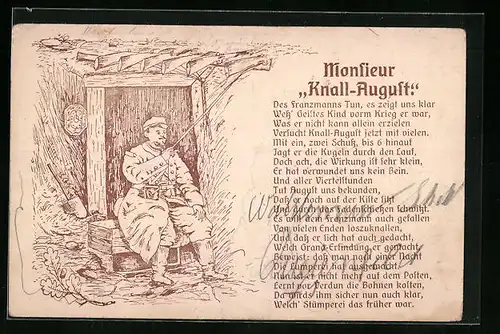 Monsieur
„Knall-August“
Des Franzmanns Tun, es zeigt uns klar
Weß' Geistes Kind vorm Krieg er war,
Was er nicht kann allein erzielen
Versucht Knall-August jetzt mit vielen.
Mit ein, zwei Schuß, bis 6 hinauf
Jagt er die Kugeln durch den Lauf,
Doch ach, die Wirkung ist sehr klein,
Er hat verwundet uns kein Bein.
Und aller Viertelstunden
Tut August uns bekunden,
Daß er noch auf der Kiste sitzt
Und schwitzt.
Es will dem Franzmann auch gefallen
Von vielen Enden loszuknallen,
Und daß er sich hat auch gedacht,
Welch Grand-Erfindung er gemacht,
man nach einer Nacht
Die Lumperei hat ausgemacht.
Nun ist er nicht mehr auf dem Posten,
Lernt vor Verdun die Bohnen kosten,
Da wird's ihm sicher nun auch klar,
Welch' Stümperei das früher war.